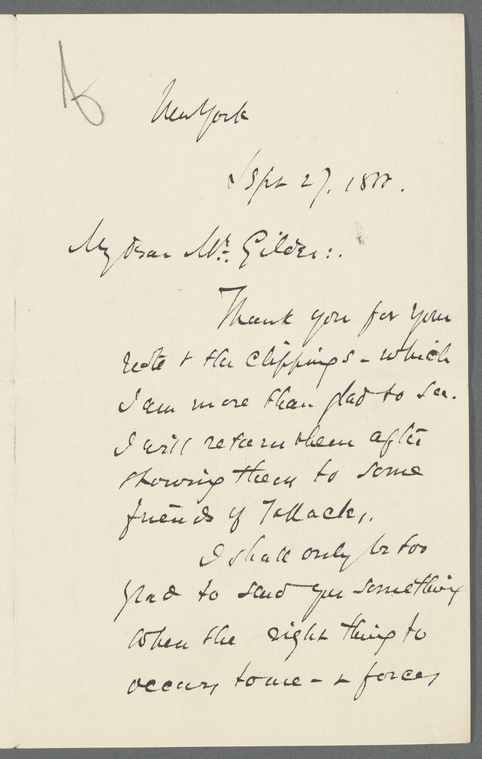 New York
Sept 27. 1888.
My dear Mr. Gilder:.
Thank you for your
note & the clippings - which
I am more than glad to see.
I will return them after
showing them to some
friends of
I shall only be too
glad to send you something
when the right thing to
occurs to me - & forces